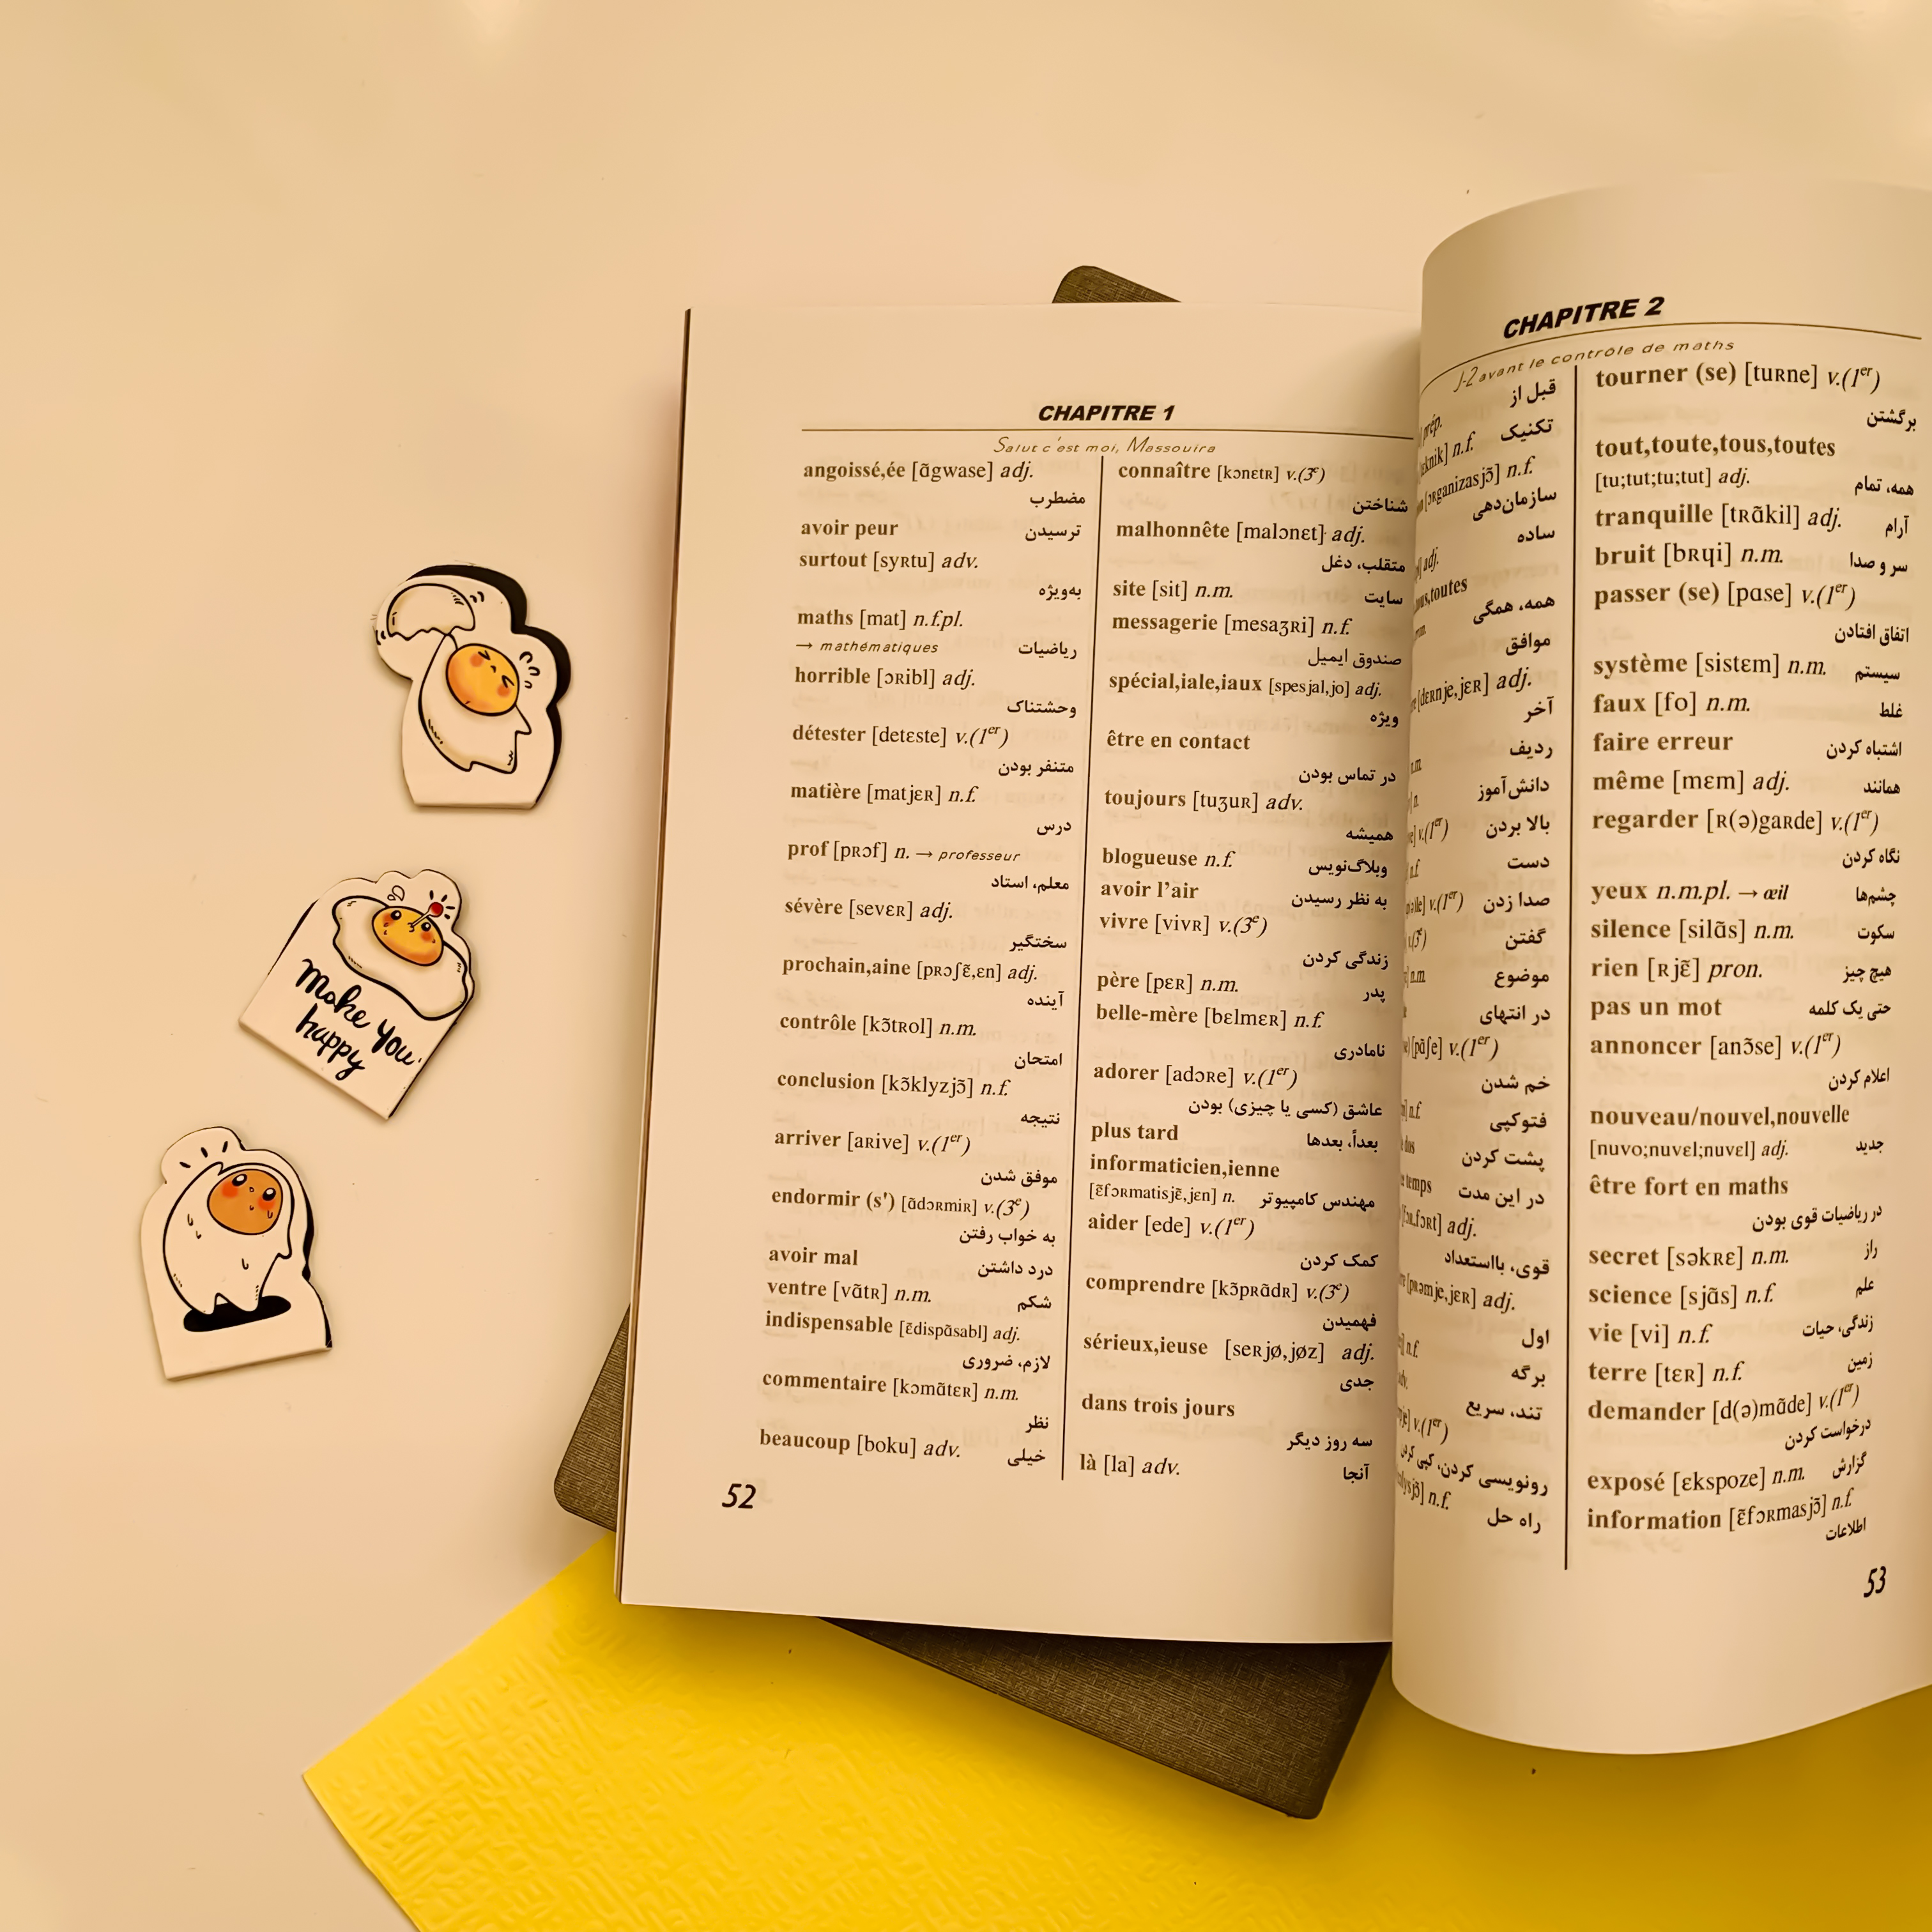 Make you
happy
CHAPITRE 1
Salut c'est moi, Massouira
angoissé,ée [ɑ̃gwase] adj.
مضطرب
avoir peur ترسیدن
surtout [syʀtu] adv.
به‌ویژه
maths [mat] n.f.pl.
→ mathématiques ریاضیات
horrible [ɔʀibl] adj.
وحشتناک
détester [detɛste] v.(1er)
متنفر بودن
matière [matjɛʀ] n.f.
درس
prof [pʀɔf] n. → professeur
معلم، استاد
sévère [sevɛʀ] adj.
سختگیر
prochain,aine [pʀɔʃɛ̃,ɛn] adj.
آینده
contrôle [kɔ̃tʀol] n.m.
امتحان
conclusion [kɔ̃klyzjɔ̃] n.f.
نتیجه
arriver [aʀive] v.(1er)
موفق شدن
endormir (s') [ɑ̃dɔʀmiʀ] v.(3e)
به خواب رفتن
avoir mal درد داشتن
ventre [vɑ̃tʀ] n.m. شکم
indispensable [ɛ̃dispɑ̃sabl] adj.
لازم، ضروری
commentaire [kɔmɑ̃tɛʀ] n.m.
نظر
beaucoup [boku] adv. خیلی
52
connaître [kɔnɛtʀ] v.(3e)
شناختن
malhonnête [malɔnɛt] adj.
متقلب، دغل
site [sit] n.m. سایت
messagerie [mesaʒʀi] n.f.
صندوق ایمیل
spécial,iale,iaux [spesjal,jo] adj.
ویژه
être en contact
در تماس بودن
toujours [tuʒuʀ] adv.
همیشه
blogueuse n.f. وبلاگ‌نویس
avoir l'air به نظر رسیدن
vivre [vivʀ] v.(3e)
زندگی کردن
père [pɛʀ] n.m. پدر
belle-mère [bɛlmɛʀ] n.f.
نامادری
adorer [adɔʀe] v.(1er)
عاشق (کسی یا چیزی) بودن
plus tard بعداً، بعدها
informaticien,ienne
[ɛ̃fɔʀmatisjɛ̃,jɛn] n. مهندس کامپیوتر
aider [ede] v.(1er)
کمک کردن
comprendre [kɔ̃pʀɑ̃dʀ] v.(3e)
فهمیدن
sérieux,ieuse [seʀjø,jøz] adj.
جدی
dans trois jours
سه روز دیگر
là [la] adv. آنجا
CHAPITRE 2
J-2 avant le contrôle de maths
قبل از
prép.
تکنیک
n.f.
n.f.
سازمان‌دهی
ساده
adj.
toutes
همه، همگی
موافق
[dɛʀnje,jɛʀ] adj.
آخر
ردیف
n.m.
دانش‌آموز
n.
بالا بردن
v.(1er)
دست
n.f.
صدا زدن
v.(1er)
گفتن
موضوع
n.m.
در انتهای
[pɑ̃ʃe] v.(1er)
خم شدن
فتوکپی
n.f.
پشت کردن
dos
در این مدت
temps
adj.
قوی، بااستعداد
[pʀəmje,jɛʀ] adj.
اول
n.f.
برگه
تند، سریع
v.(1er)
رونویسی کردن، کپی کردن
n.f.
راه حل
tourner (se) [tuʀne] v.(1er)
برگشتن
tout,toute,tous,toutes
[tu;tut;tu;tut] adj. همه، تمام
tranquille [tʀɑ̃kil] adj. آرام
bruit [bʀɥi] n.m. سر و صدا
passer (se) [pɑse] v.(1er)
اتفاق افتادن
système [sistɛm] n.m. سیستم
faux [fo] n.m. غلط
faire erreur اشتباه کردن
même [mɛm] adj. همانند
regarder [ʀ(ə)gaʀde] v.(1er)
نگاه کردن
yeux n.m.pl. → œil چشم‌ها
silence [silɑ̃s] n.m. سکوت
rien [ʀjɛ̃] pron. هیچ چیز
pas un mot حتی یک کلمه
annoncer [anɔ̃se] v.(1er)
اعلام کردن
nouveau/nouvel,nouvelle
[nuvo;nuvɛl;nuvɛl] adj. جدید
être fort en maths
در ریاضیات قوی بودن
secret [səkʀɛ] n.m. راز
science [sjɑ̃s] n.f. علم
vie [vi] n.f. زندگی، حیات
terre [tɛʀ] n.f. زمین
demander [d(ə)mɑ̃de] v.(1er)
درخواست کردن
exposé [ɛkspoze] n.m. گزارش
information [ɛ̃fɔʀmasjɔ̃] n.f.
اطلاعات
53